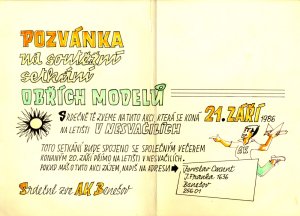 POZVÁNKA
na soutěžní
setkání
OBŘÍCH MODELŮ
SRDEČNĚ TĚ ZVEME NA TUTO AKCI, KTERÁ SE KONÁ
NA LETIŠTI V NESVAČILÍCH
21. ZÁŘÍ 1986
TOTO SETKÁNÍ BUDE SPOJENO SE SPOLEČNÝM VEČEREM
KONANÝM 20. ZÁŘÍ PŘÍMO NA LETIŠTI V NESVAČILÍCH.
POKUD MÁŠ O TUTO AKCI ZÁJEM, NAPIŠ NA ADRESU
Jaroslav
1636
Benešov
256 01
Srdečně zve AK Benešov